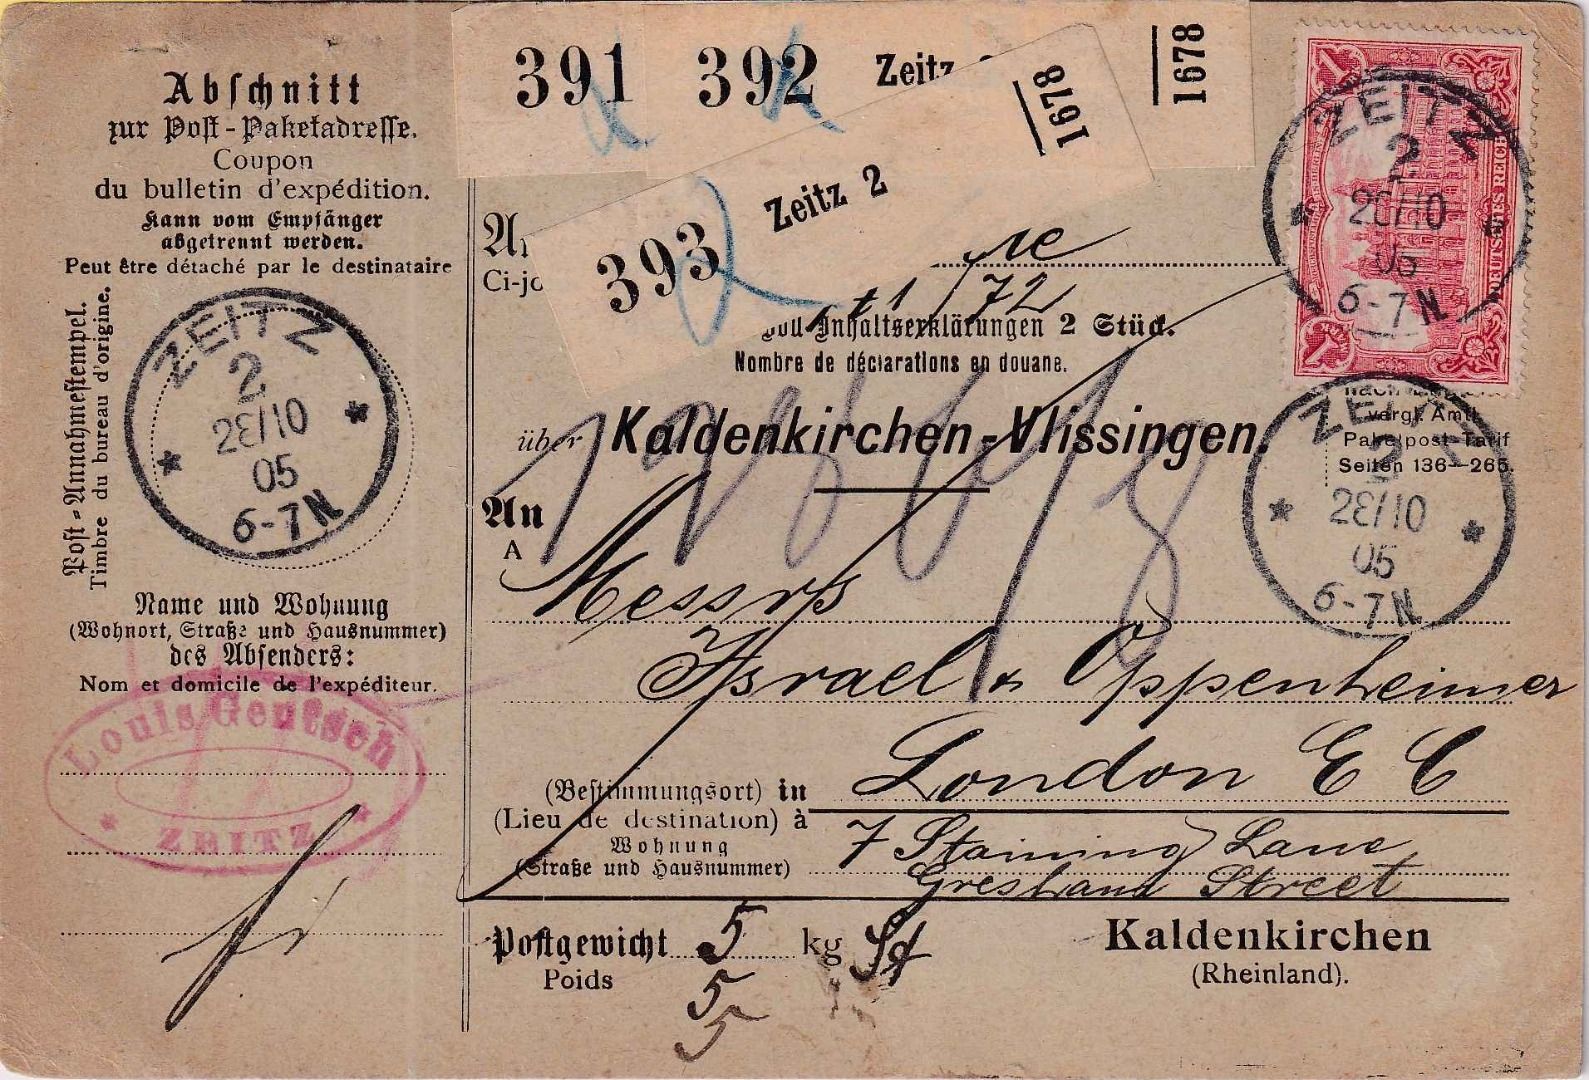 Abschnitt
zur Post-Paketadresse.
Coupon
du bulletin d'expédition.
Kann vom Empfänger
abgetrennt werden.
Peut être détaché par le destinataire
Post-Annahmestempel.
Timbre du bureau d'origine.
ZEITZ
2
10
05
6-7N
Name und Wohnung
(Wohnort, Straße und Hausnummer)
des Absenders:
Nom et domicile de l'expéditeur.
Louis Gentsch
ZEITZ
391
392 Zeitz
1678
393 Zeitz 2
1678
Ci-jo
72
Inhaltserklärungen 2 Stück.
Nombre de déclarations en douane.
über Kaldenkirchen-Vlissingen.
An
A
Messrs
Israel & Oppenheimer
(Bestimmungsort) in London E C
(Lieu de destination) à
Wohnung
(Straße und Hausnummer)
7 Staining Lane
Gresham Street
Postgewicht 5 kg
Poids
5
5
Kaldenkirchen
(Rheinland).
1
DEUTSCHES REICH
1
MARK
ZEITZ
2
10
05
6-7N
vergl. Amtl.
Paketpost-Tarif
Seiten 136-265.
ZEITZ
2
10
05
6-7N